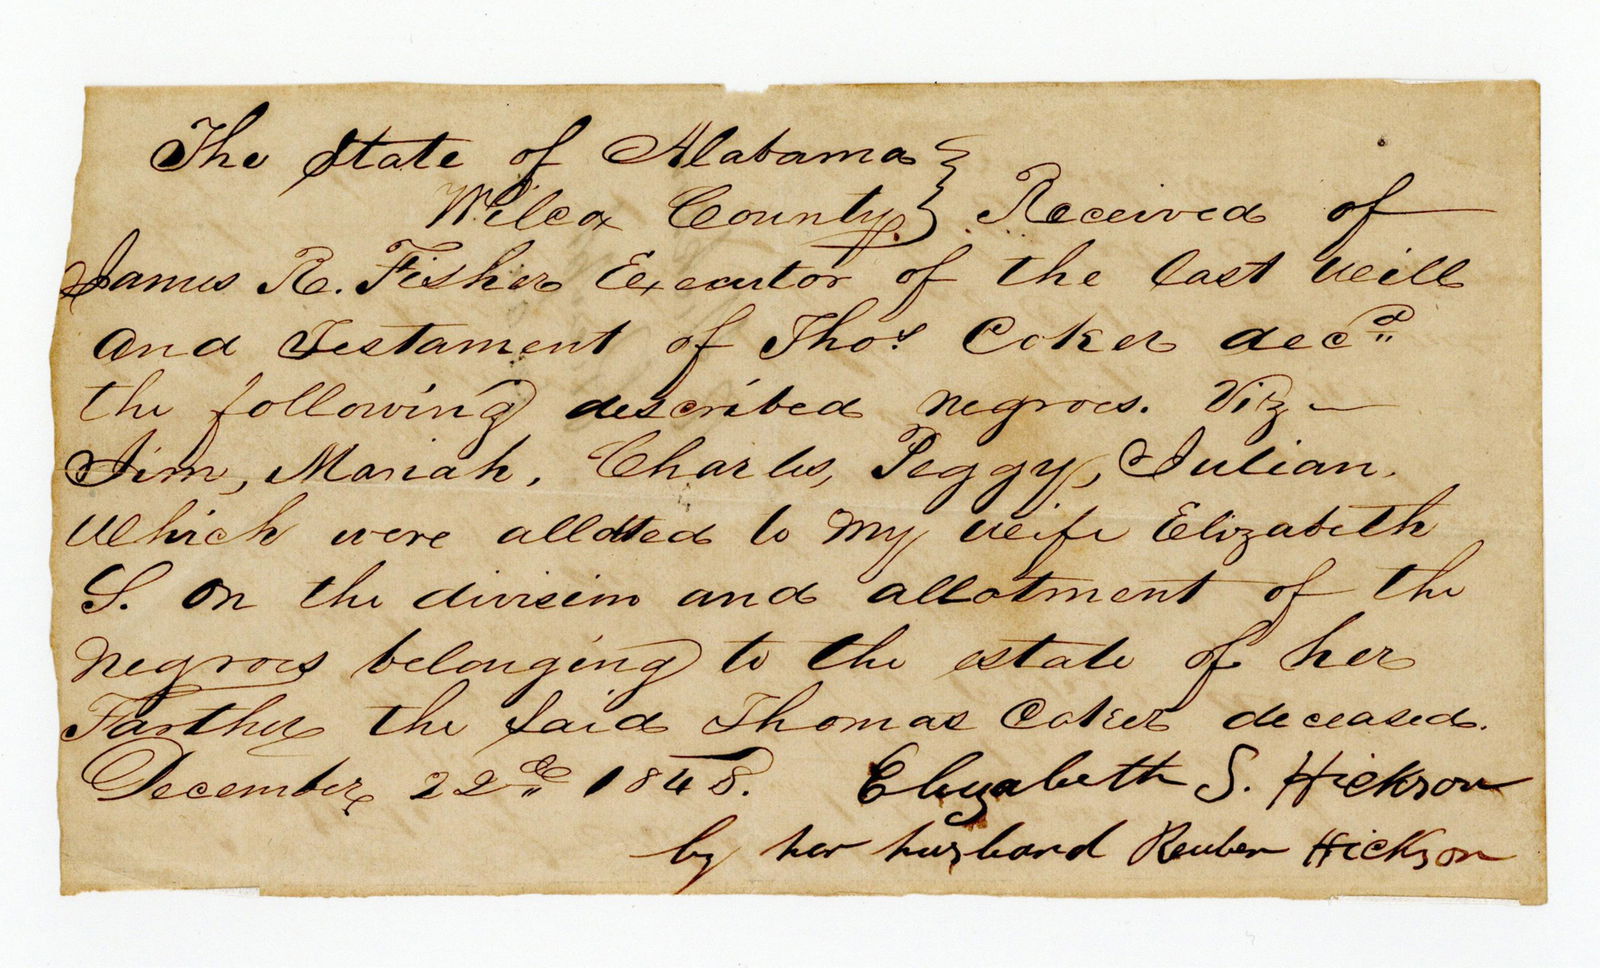 The State of Alabama }
Wilcox County. } Received of
James R. Fisher Executor of the last will
and Testament of Thos. Coker decd
the following described negroes. Viz -
Jim, Mariah, Charles, Peggy, Julian.
which were allotted to my wife Elizabeth
S. on the division and allotment of the
negroes belonging to the estate of her
Farther the said Thomas Coker deceased.
December 22nd 1848. Elizabeth S. Hickson
by her husband Reuben Hickson